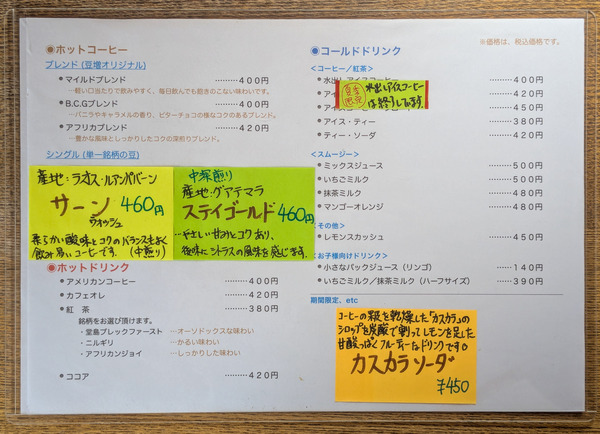 ※価格は、税込価格です。
◉ホットコーヒー
ブレンド (豆増オリジナル)
●マイルドブレンド ………400円
…軽い口当たりで飲みやすく、毎日飲んでも飽きのこない味わいです。
●B.C.Gブレンド ………400円
…バニラやキャラメルの香り、ビターチョコの様なコクのあるブレンド。
●アフリカブレンド ………420円
…豊かな風味としっかりしたコクの深煎りブレンド。
シングル (単一銘柄の豆)
産地:ラオス・ルアンパバーン
サーン 460円
ウォッシュ
柔らかい酸味とコクのバランスもよく
飲み易いコーヒーです。(中煎り)
中深煎り
産地:グアテマラ
ステイゴールド 460円
…やさしい甘みとコクあり、
後味にシトラスの風味を感じます。
◉ホットドリンク
●アメリカンコーヒー ………400円
●カフェオレ ………420円
●紅 茶 ………380円
銘柄をお選び頂けます。
・堂島ブレックファースト …オーソドックスな味わい
・ニルギリ …かるい味わい
・アフリカンジョイ …しっかりした味わい
●ココア ………420円
◉コールドドリンク
<コーヒー/紅茶>
●水出しアイスコーヒー ………400円
●アイ 420円
●アイス 450円
夏季限定
水出しアイスコーヒー
は終了してます。
●アイス・ティー ………380円
●ティー・ソーダ ………420円
<スムージー>
●ミックスジュース ………500円
●いちごミルク ………500円
●抹茶ミルク ………480円
●マンゴーオレンジ ………480円
<その他>
●レモンスカッシュ ………450円
<お子様向けドリンク>
●小さなパックジュース (リンゴ) ………140円
●いちごミルク/抹茶ミルク (ハーフサイズ) ………390円
期間限定、etc
コーヒーの殻を乾燥した「カスカラ」の
シロップを炭酸で割ってレモンを足した
甘酸っぱくフルーティーなドリンクです。
カスカラソーダ
¥450